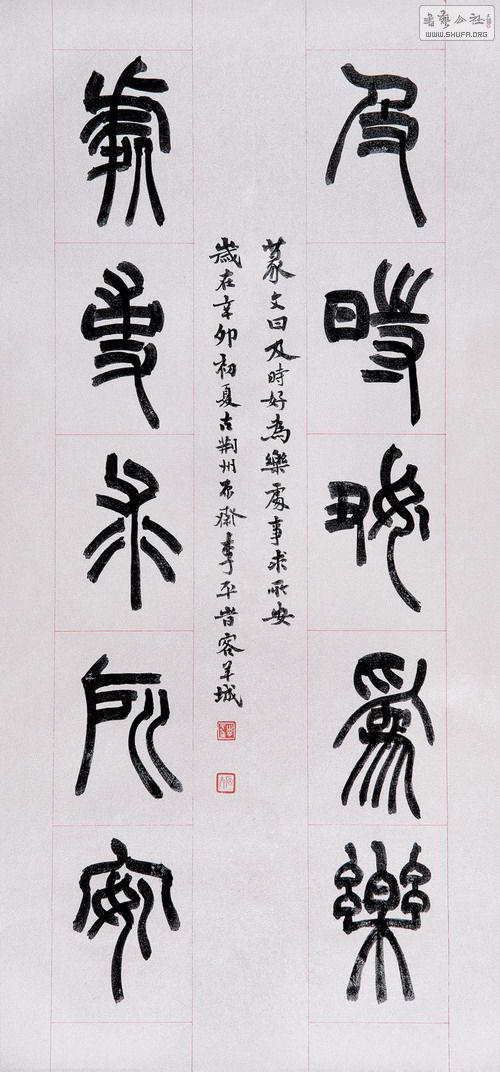 書藝公社
WWW.SHUFA.ORG
及時好爲樂
篆文曰及時好為樂處事求所安
歲在辛卯初夏古荆州齋李平旹客羊城
處事求所安